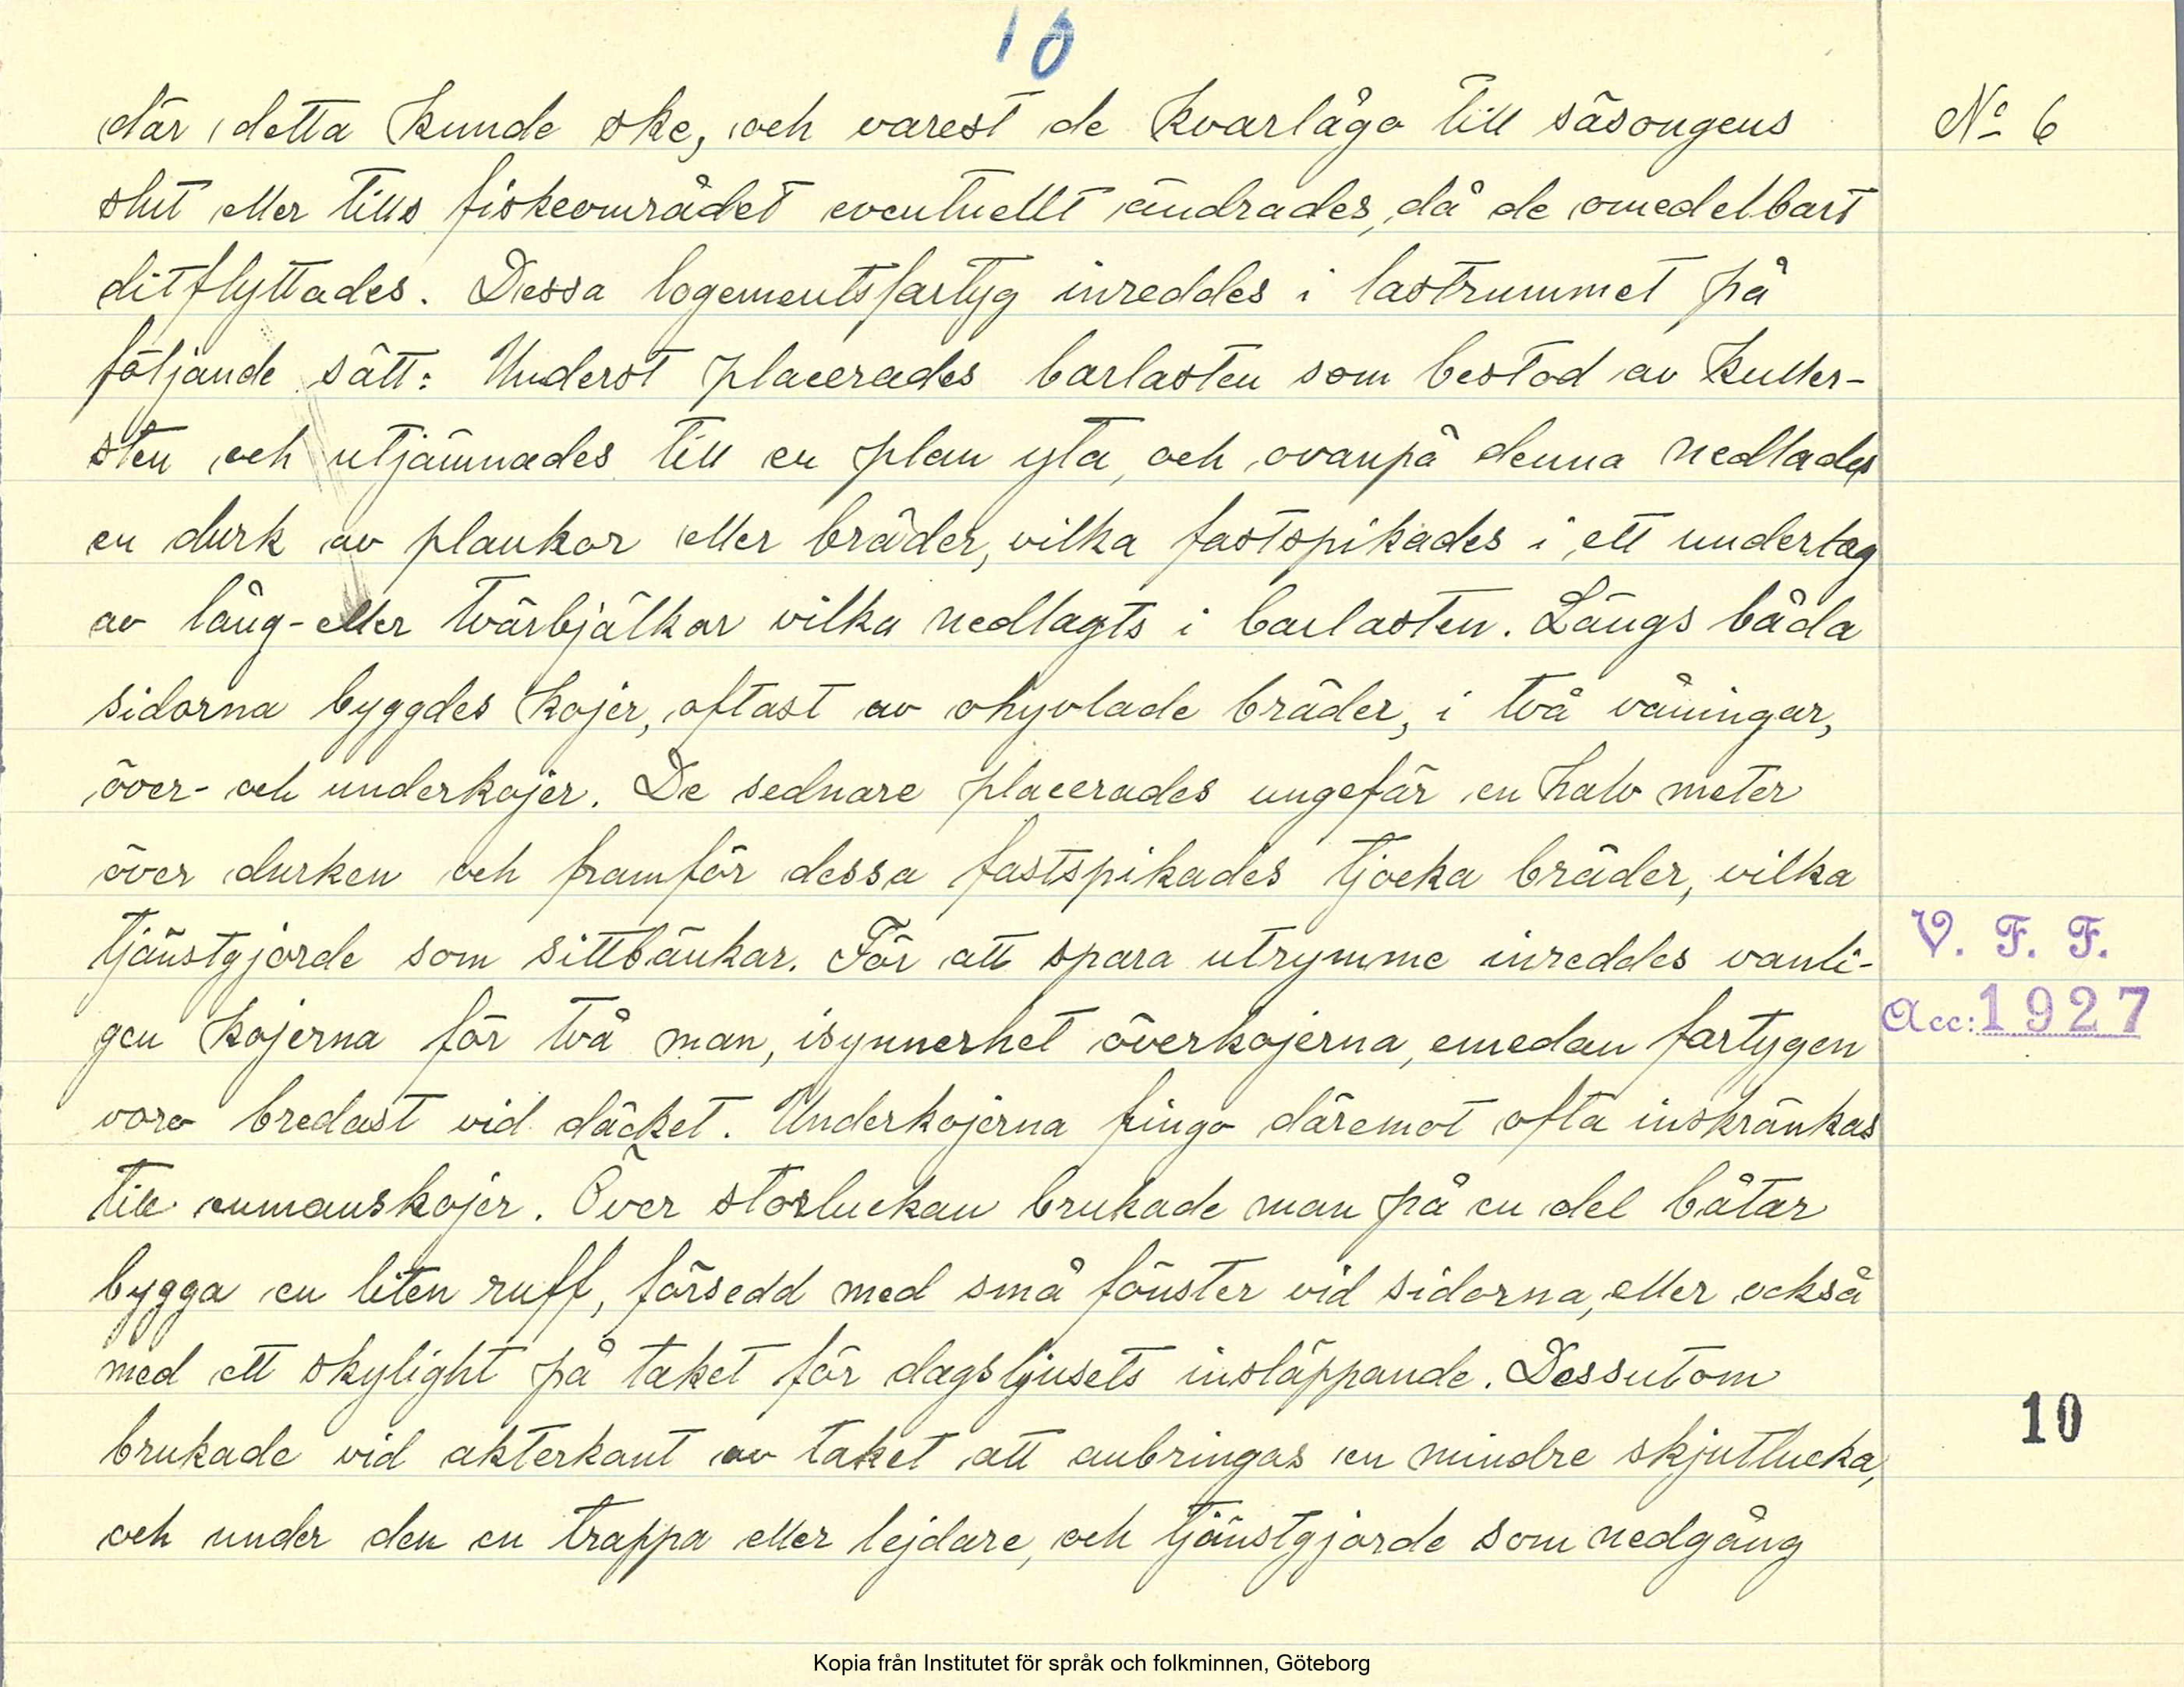 10
där detta kunde ske, och varest de kvarlågo till säsongens
slut eller tills fiskeområdet eventuellt ändrades, då de omedelbart
ditflyttades. Dessa logementsfartyg inreddes i lastrummet på
följande sätt: Underst placerades barlasten som bestod av kuller-
sten och utjämnades till en plan yta, och ovanpå denna nedlades
en durk av plankor eller bräder, vilka fastspikades i ett undertag
av lång- eller tvärbjälkar vilka nedlagts i barlasten. Längs båda
sidorna byggdes kojer, oftast av ohyvlade bräder, i två våningar,
över- och underkojer. De sednare placerades ungefär en halv meter
över durken och framför dessa fastspikades tjocka bräder, vilka
tjänstgjorde som sittbänkar. För att spara utrymme inreddes vanli-
gen kojerna för två man, isynnerhet överkojerna, emedan fartygen
voro bredast vid däcket. Underkojerna fingo däremot ofta inskränkas
till enmanskojer. Över storluckan brukade man på en del båtar
bygga en liten ruff, försedd med små fönster vid sidorna, eller också
med ett skylight på taket för dagsljusets insläppande. Dessutom
brukade vid akterkant av taket att anbringas en mindre skjutlucka,
och under den en trappa eller lejdare, och tjänstgjorde som nedgång
No 6
V. F. F.
Acc: 1927
10
Kopia från Institutet för språk och folkminnen, Göteborg